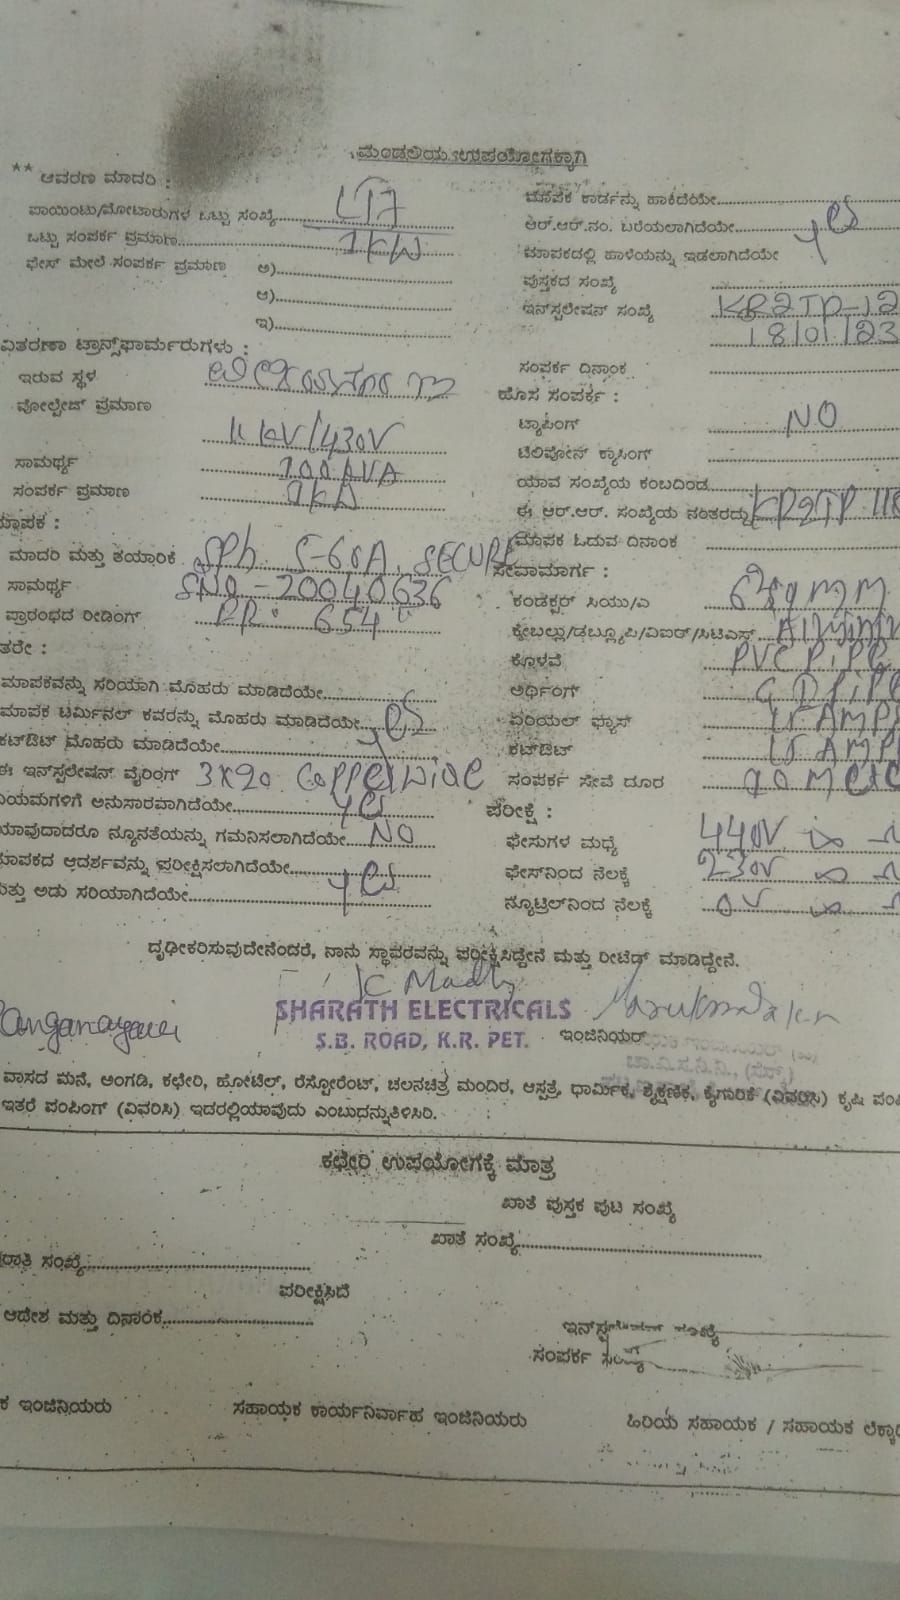 ಮಂಡಲಿಯ ಉಪಯೋಗಕ್ಕಾಗಿ
** ಆವರಣ ಮಾದರಿ :
ಪಾಯಿಂಟು/ಮೋಟಾರುಗಳ ಒಟ್ಟು ಸಂಖ್ಯೆ LT7
ಒಟ್ಟು ಸಂಪರ್ಕ ಪ್ರಮಾಣ 1KW
ಫೇಸ್ ಮೇಲೆ ಸಂಪರ್ಕ ಪ್ರಮಾಣ ಅ)
ಆ)
ಇ)
ವಿತರಣಾ ಟ್ರಾನ್ಸ್‌ಫಾರ್ಮರುಗಳು :
ಇರುವ ಸ್ಥಳ
ವೋಲ್ಟೇಜ್ ಪ್ರಮಾಣ
11 KV/430V
ಸಾಮರ್ಥ್ಯ 100 AVA
ಸಂಪರ್ಕ ಪ್ರಮಾಣ
ಮಾದರಿ ಮತ್ತು ತಯಾರಿಕೆ SPh 5-60A, SECURE
ಸಾಮರ್ಥ್ಯ SNO - 20040636
ಪ್ರಾರಂಭದ ರೀಡಿಂಗ್ RR: 654
ಮಾಪಕವನ್ನು ಸರಿಯಾಗಿ ಮೊಹರು ಮಾಡಿದೆಯೇ
ಮಾಪಕ ಟರ್ಮಿನಲ್ ಕವರನ್ನು ಮೊಹರು ಮಾಡಿದೆಯೇ yes
ಕಟ್‌ಔಟ್ ಮೊಹರು ಮಾಡಿದೆಯೇ
ಈ ಇನ್‌ಸ್ಟಲೇಷನ್ ವೈರಿಂಗ್ 3X20 Copper wire
ನಿಯಮಗಳಿಗೆ ಅನುಸಾರವಾಗಿದೆಯೇ yes
ಯಾವುದಾದರೂ ನ್ಯೂನತೆಯನ್ನು ಗಮನಿಸಲಾಗಿದೆಯೇ NO
ಮಾಪಕದ ಆದರ್ಶವನ್ನು ಪರೀಕ್ಷಿಸಲಾಗಿದೆಯೇ
ಮತ್ತು ಅದು ಸರಿಯಾಗಿದೆಯೇ yes
ಮಾಪಕ ಕಾರ್ಡನ್ನು ಹಾಕಿದೆಯೇ
ಆರ್.ಆರ್.ನಂ. ಬರೆಯಲಾಗಿದೆಯೇ yes
ಮಾಪಕದಲ್ಲಿ ಹಾಳೆಯನ್ನು ಇಡಲಾಗಿದೆಯೇ
ಪುಸ್ತಕದ ಸಂಖ್ಯೆ
ಇನ್‌ಸ್ಟಲೇಷನ್ ಸಂಖ್ಯೆ KR2TP-12
18/01/23
ಸಂಪರ್ಕ ದಿನಾಂಕ
ಹೊಸ ಸಂಪರ್ಕ :
ಟ್ಯಾಪಿಂಗ್ NO
ಟೆಲಿಫೋನ್ ಕ್ರಾಸಿಂಗ್
ಯಾವ ಸಂಖ್ಯೆಯ ಕಂಬದಿಂದ
ಈ ಆರ್.ಆರ್. ಸಂಖ್ಯೆಯ ನಂತರದ್ದು KR2TP
ಮಾಪಕ ಓದುವ ದಿನಾಂಕ
ಸೇವಾಮಾರ್ಗ :
ಕಂಡಕ್ಟರ್ ಸಿಯು/ಎ 6 sqmm
ಕೇಬಲ್ಲು/ಡಬ್ಲ್ಯೂಪಿ/ವಿಐಆರ್/ಸಿಟಿಎಸ್
ಕೊಳವೆ PVC PiPe
ಅರ್ಥಿಂಗ್
ಏರಿಯಲ್ ಫ್ಯೂಸ್ 15 AMP
ಕಟ್‌ಔಟ್ 15 AMP
ಸಂಪರ್ಕ ಸೇವೆ ದೂರ
ಪರೀಕ್ಷೆ :
ಫೇಸುಗಳ ಮಧ್ಯೆ 440V
ಫೇಸ್‌ನಿಂದ ನೆಲಕ್ಕೆ 230V
ನ್ಯೂಟ್ರಲ್‌ನಿಂದ ನೆಲಕ್ಕೆ 0V
ದೃಢೀಕರಿಸುವುದೇನೆಂದರೆ, ನಾನು ಸ್ಥಾವರವನ್ನು ಪರೀಕ್ಷಿಸಿದ್ದೇನೆ ಮತ್ತು ರೀಟೆಡ್ ಮಾಡಿದ್ದೇನೆ.
SHARATH ELECTRICALS
S.B. ROAD, K.R. PET.
ಇಂಜಿನಿಯರ್
ವಾಸದ ಮನೆ, ಅಂಗಡಿ, ಕಛೇರಿ, ಹೋಟೆಲ್, ರೆಸ್ಟೋರೆಂಟ್, ಚಲನಚಿತ್ರ ಮಂದಿರ, ಆಸ್ಪತ್ರೆ, ಧಾರ್ಮಿಕ, ಶೈಕ್ಷಣಿಕ, ಕೈಗಾರಿಕೆ (ವಿವರಿಸಿ) ಕೃಷಿ
ಇತರೆ ಪಂಪಿಂಗ್ (ವಿವರಿಸಿ) ಇದರಲ್ಲಿಯಾವುದು ಎಂಬುದನ್ನುತಿಳಿಸಿರಿ.
ಕಛೇರಿ ಉಪಯೋಗಕ್ಕೆ ಮಾತ್ರ
ಖಾತೆ ಪುಸ್ತಕ ಪುಟ ಸಂಖ್ಯೆ
ಖಾತೆ ಸಂಖ್ಯೆ
ಸಂಖ್ಯೆ
ಪರೀಕ್ಷಿಸಿದೆ
ಆದೇಶ ಮತ್ತು ದಿನಾಂಕ
ಸಂಖ್ಯೆ
ಸಂಪರ್ಕ
ಇಂಜಿನಿಯರು
ಸಹಾಯಕ ಕಾರ್ಯನಿರ್ವಾಹ ಇಂಜಿನಿಯರು
ಹಿರಿಯ ಸಹಾಯಕ / ಸಹಾಯಕ